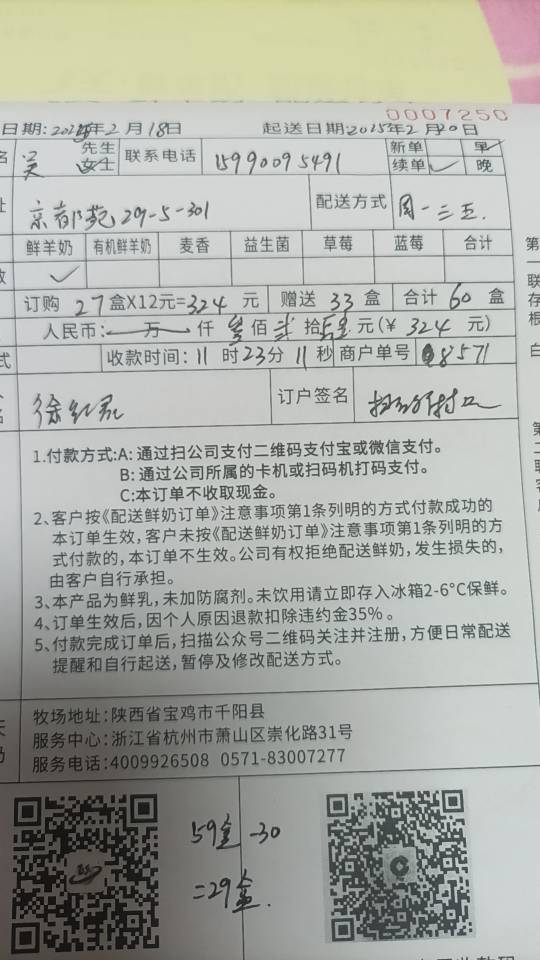 0007250
日期:2025年2月18日 起送日期:2025年2月20日
名 吴 先生 女士 联系电话 15990095491 新单 早 续单 ✓ 晚
址 京都苑 29-5-301 配送方式 周一三五.
鲜羊奶 有机鲜羊奶 麦香 益生菌 草莓 蓝莓 合计 第
数 ✓ 联
订购 27 盒X12元=324 元 赠送 33 盒 合计 60 盒 存
人民币: 万 仟 叁佰 贰 拾 元(¥ 324 元) 根
式 收款时间: 11 时23分 11 秒 商户单号 8571 白
名 订户签名
1.付款方式:A: 通过扫公司支付二维码支付宝或微信支付。
B: 通过公司所属的卡机或扫码机打码支付。
C:本订单不收取现金。
2、客户按《配送鲜奶订单》注意事项第1条列明的方式付款成功的
本订单生效,客户未按《配送鲜奶订单》注意事项第1条列明的方
式付款的,本订单不生效。公司有权拒绝配送鲜奶,发生损失的,
由客户自行承担。
3、本产品为鲜乳,未加防腐剂。未饮用请立即存入冰箱2-6°C保鲜。
4、订单生效后,因个人原因退款扣除违约金35%。
5、付款完成订单后,扫描公众号二维码关注并注册,方便日常配送
提醒和自行起送,暂停及修改配送方式。
牧场地址:陕西省宝鸡市千阳县
服务中心:浙江省杭州市萧山区崇化路31号
服务电话:4009926508 0571-83007277
59盒-30
=29盒.